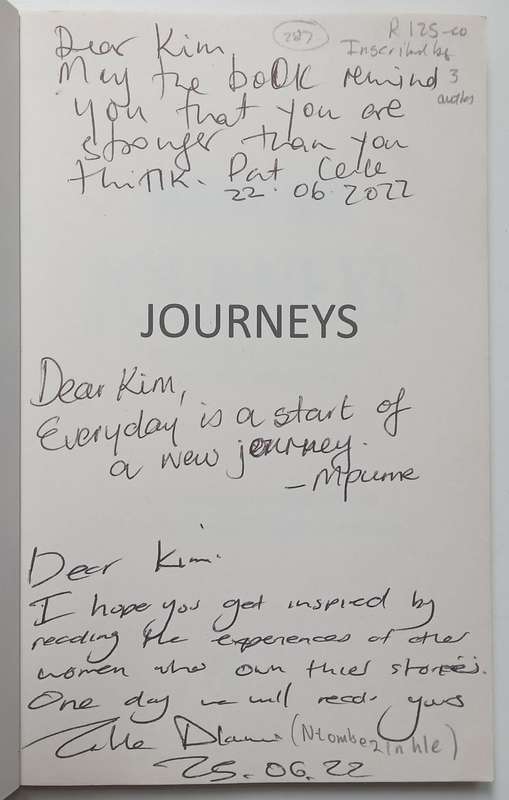 Dear Kim,
287
R125-00
Inscribed by
3
authors
May the book remind
you that you are
stronger than you
think. Pat Cele
22.06.2022
JOURNEYS
Dear Kim,
Everyday is a start of
a new journey.
- Mpume
Dear Kim.
I hope you get inspired by
reading the experiences of other
women who own their stories.
One day we will read yours
(Ntombezinhle)
25.06.22